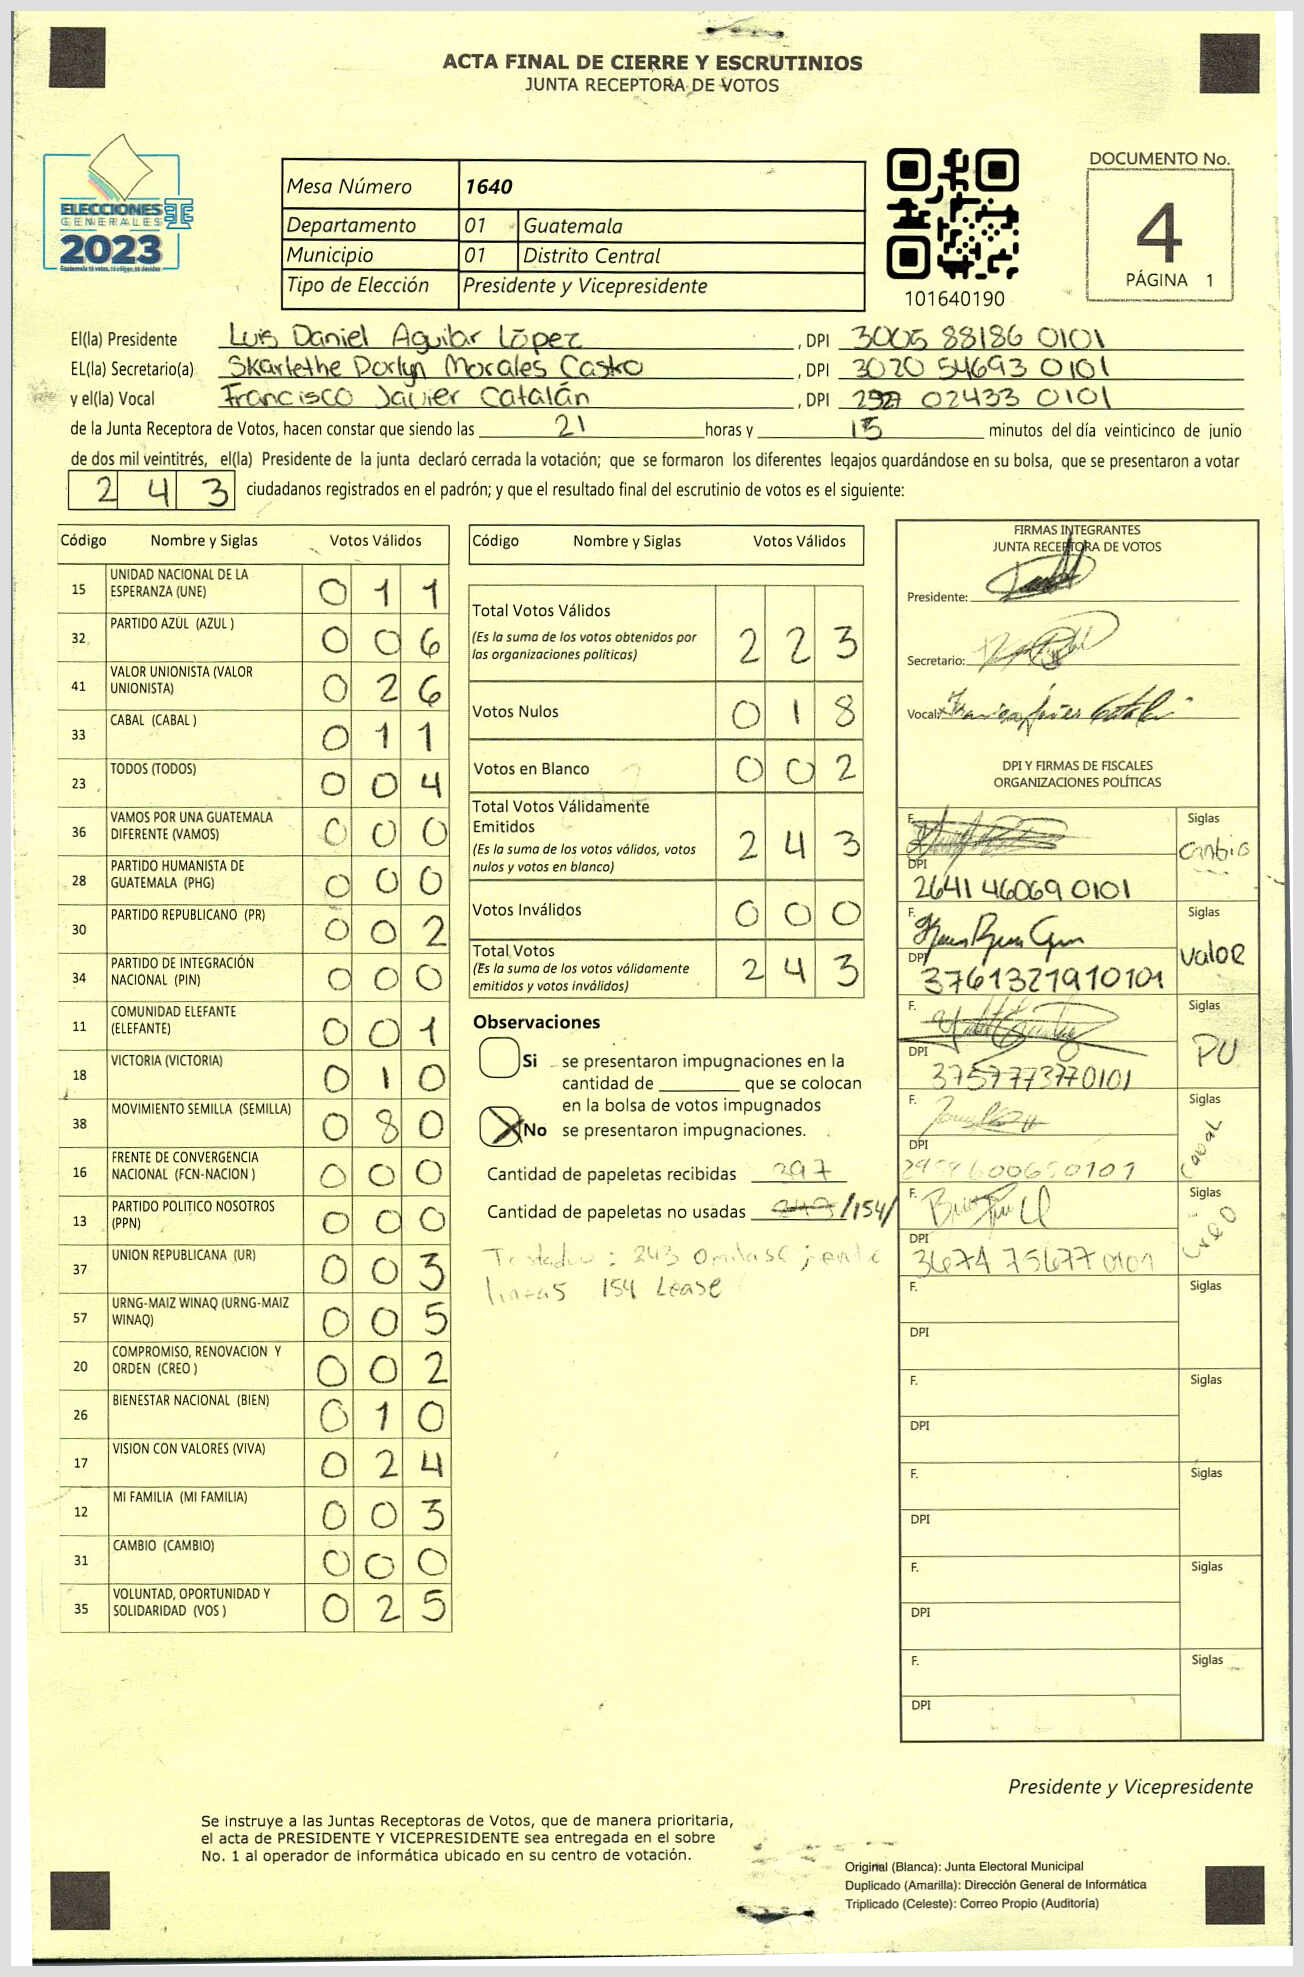 ACTA FINAL DE CIERRE Y ESCRUTINIOS
JUNTA RECEPTORA DE VOTOS
ELECCIONES
GENERALES
2023
Mesa Número 1640
Departamento 01 Guatemala
Municipio 01 Distrito Central
Tipo de Elección Presidente y Vicepresidente
101640190
DOCUMENTO No.
4
PÁGINA 1
El(la) Presidente Luis Daniel Aguilar López, DPI 3005 88186 0101
EL(la) Secretario(a) Skarlethe Dorlyn Morales Castro, DPI 3020 54693 0101
y el(la) Vocal Francisco Javier Catalán, DPI 02433 0101
de la Junta Receptora de Votos, hacen constar que siendo las 21 horas y 15 minutos del día veinticinco de junio
de dos mil veintitrés, el(la) Presidente de la junta declaró cerrada la votación; que se formaron los diferentes legajos quardándose en su bolsa, que se presentaron a votar
243 ciudadanos registrados en el padrón; y que el resultado final del escrutinio de votos es el siguiente:
Código Nombre y Siglas Votos Válidos
15 UNIDAD NACIONAL DE LA ESPERANZA (UNE) 011
32 PARTIDO AZUL (AZUL ) 006
41 VALOR UNIONISTA (VALOR UNIONISTA) 026
33 CABAL (CABAL ) 011
23 TODOS (TODOS) 004
36 VAMOS POR UNA GUATEMALA DIFERENTE (VAMOS) 000
28 PARTIDO HUMANISTA DE GUATEMALA (PHG) 000
30 PARTIDO REPUBLICANO (PR) 002
34 PARTIDO DE INTEGRACIÓN NACIONAL (PIN) 000
11 COMUNIDAD ELEFANTE (ELEFANTE) 001
18 VICTORIA (VICTORIA) 010
38 MOVIMIENTO SEMILLA (SEMILLA) 080
16 FRENTE DE CONVERGENCIA NACIONAL (FCN-NACION ) 000
13 PARTIDO POLITICO NOSOTROS (PPN) 000
37 UNION REPUBLICANA (UR) 003
57 URNG-MAIZ WINAQ (URNG-MAIZ WINAQ) 005
20 COMPROMISO, RENOVACION Y ORDEN (CREO ) 002
26 BIENESTAR NACIONAL (BIEN) 010
17 VISION CON VALORES (VIVA) 024
12 MI FAMILIA (MI FAMILIA) 003
31 CAMBIO (CAMBIO) 000
35 VOLUNTAD, OPORTUNIDAD Y SOLIDARIDAD (VOS ) 025
Código Nombre y Siglas Votos Válidos
Total Votos Válidos 223
(Es la suma de los votos obtenidos por
las organizaciones politicas)
Votos Nulos 018
Votos en Blanco 002
Total Votos Válidamente
Emitidos 243
(Es la suma de los votos válidos, votos
nulos y votos en blanco)
Votos Inválidos 000
Total Votos 243
(Es la suma de los votos válidamente
emitidos y votos inválidos)
Observaciones
Si se presentaron impugnaciones en la
cantidad de ________ que se colocan
en la bolsa de votos impugnados
No se presentaron impugnaciones.
Cantidad de papeletas recibidas 397
Cantidad de papeletas no usadas 243 /154/
Testado: 243 Omitase; entre
lineas 154 Lease
FIRMAS INTEGRANTES
JUNTA RECEPTORA DE VOTOS
Presidente:
Secretario:
Vocal:
DPI Y FIRMAS DE FISCALES
ORGANIZACIONES POLÍTICAS
F. Siglas Cambio
DPI 2641 46069 0101
F. Siglas Valor
DPI 3761321910101
F. Siglas PU
DPI 3757773770101
F. Siglas Cabal
DPI
F. Siglas Creo
DPI 3674 75677 0101
F. Siglas
DPI
F. Siglas
DPI
F. Siglas
DPI
F. Siglas
DPI
F. Siglas
DPI
Presidente y Vicepresidente
Se instruye a las Juntas Receptoras de Votos, que de manera prioritaria,
el acta de PRESIDENTE Y VICEPRESIDENTE sea entregada en el sobre
No. 1 al operador de informática ubicado en su centro de votación.
Original (Blanca): Junta Electoral Municipal
Duplicado (Amarilla): Dirección General de Informática
Triplicado (Celeste): Correo Propio (Auditoría)